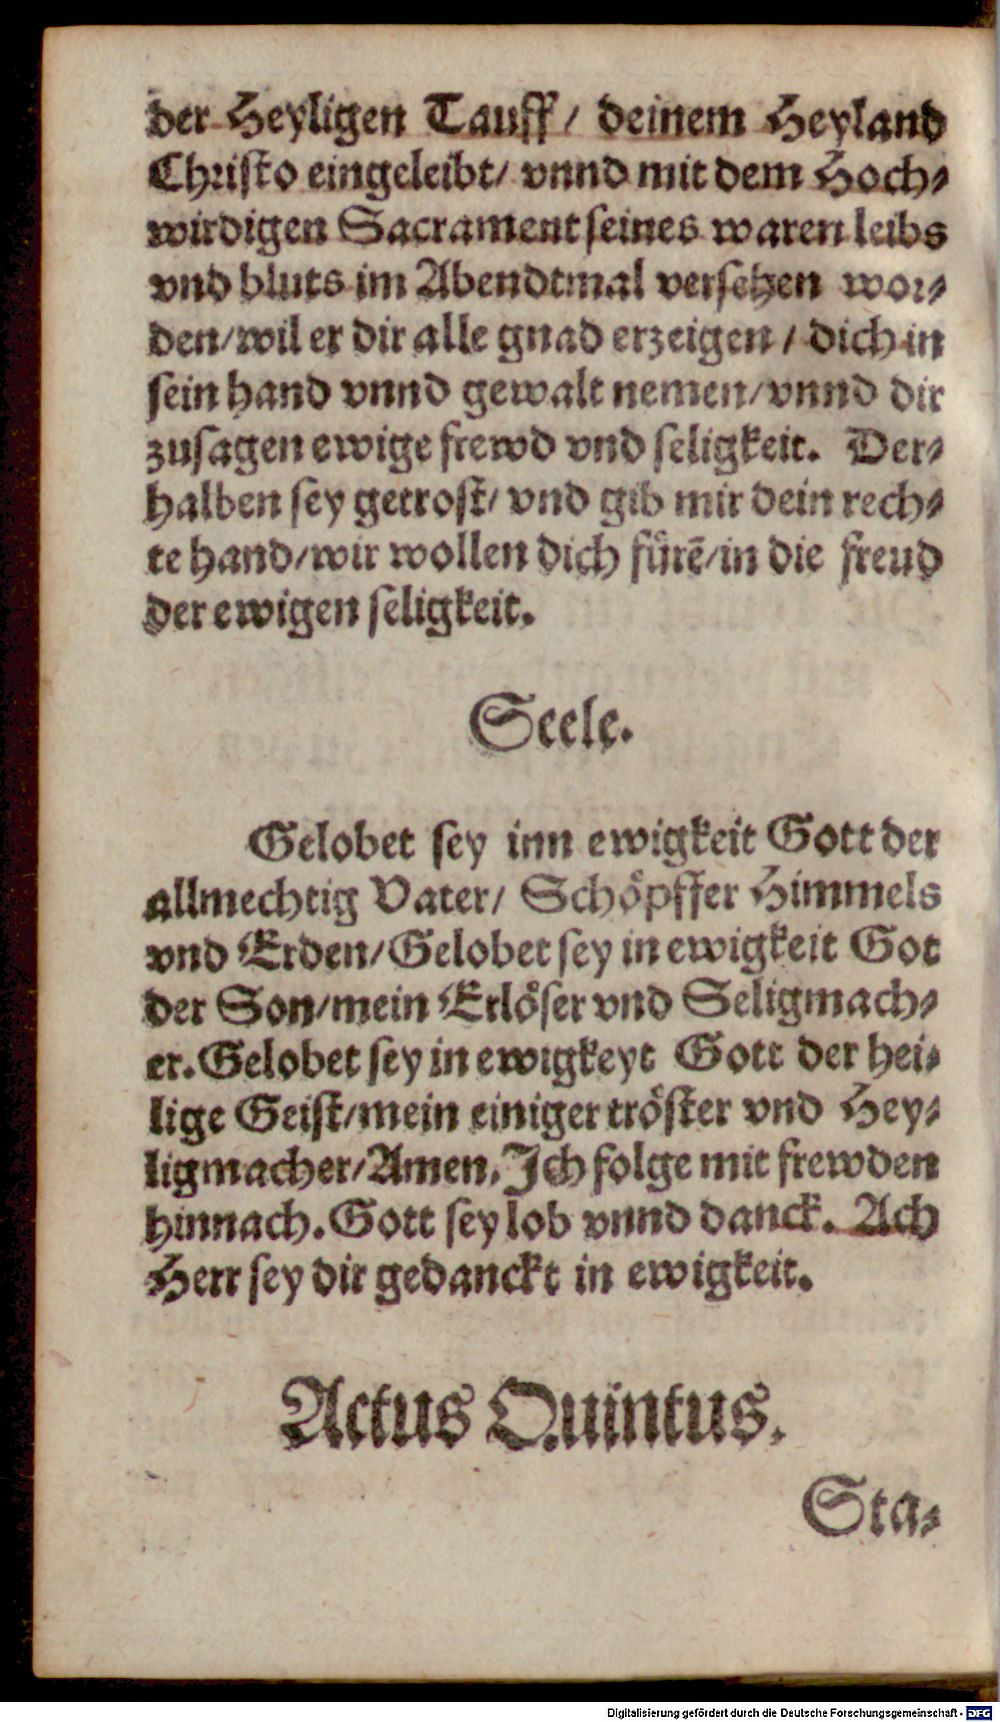 der Heyligen Tauff/ deinem Heyland
Christo eingeleibt/ vnnd mit dem Hoch-
wirdigen Sacrament seines waren leibs
vnd bluts im Abendtmal versehen wor-
den/wil er dir alle gnad erzeigen/ dich in
sein hand vnnd gewalt nemen/vnnd dir
zusagen ewige frewd vnd seligkeit. Der-
halben sey getrost/ vnd gib mir dein rech-
te hand/wir wollen dich fürẽ/in die freud
der ewigen seligkeit.
Seele.
Gelobet sey inn ewigkeit Gott der
allmechtig Vater/ Schöpffer Himmels
vnd Erden/Gelobet sey in ewigkeit Got
der Son/mein Erlöser vnd Seligmach-
er. Gelobet sey in ewigkeyt Gott der hei-
lige Geist/mein einiger tröster vnd Hey-
ligmacher/Amen. Ich folge mit frewden
hinnach. Gott sey lob vnnd danck. Ach
Herr sey dir gedanckt in ewigkeit.
Actus Quintus.
Sta-
Digitalisierung gefördert durch die Deutsche Forschungsgemeinschaft - DFG